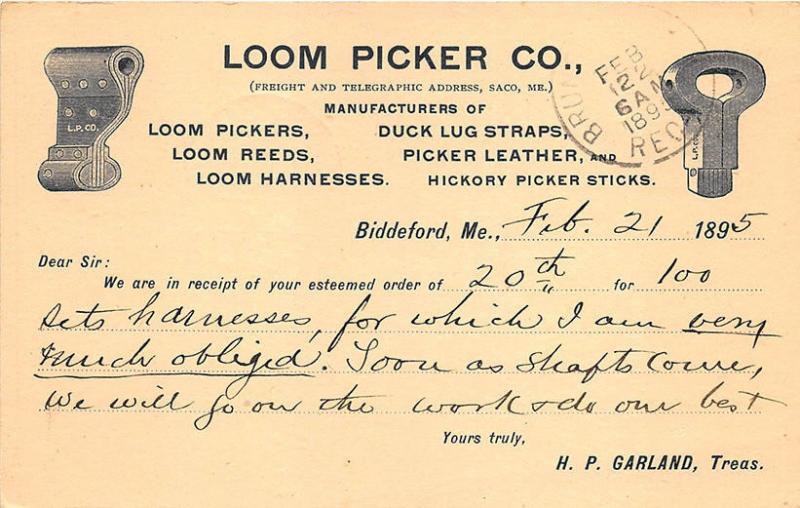 LOOM PICKER CO.,
(FREIGHT AND TELEGRAPHIC ADDRESS, SACO, ME.)
MANUFACTURERS OF
LOOM PICKERS, DUCK LUG STRAPS,
LOOM REEDS, PICKER LEATHER, AND
LOOM HARNESSES. HICKORY PICKER STICKS.
L.P. CO.
FEB
22
6 AM
REC'D
L.P. CO.
Biddeford, Me., Feb. 21 1895
Dear Sir:
We are in receipt of your esteemed order of 20th for 100
sets harnesses, for which I am very
much obliged. Soon as shafts come,
we will go on the work & do our best
Yours truly,
H. P. GARLAND, Treas.